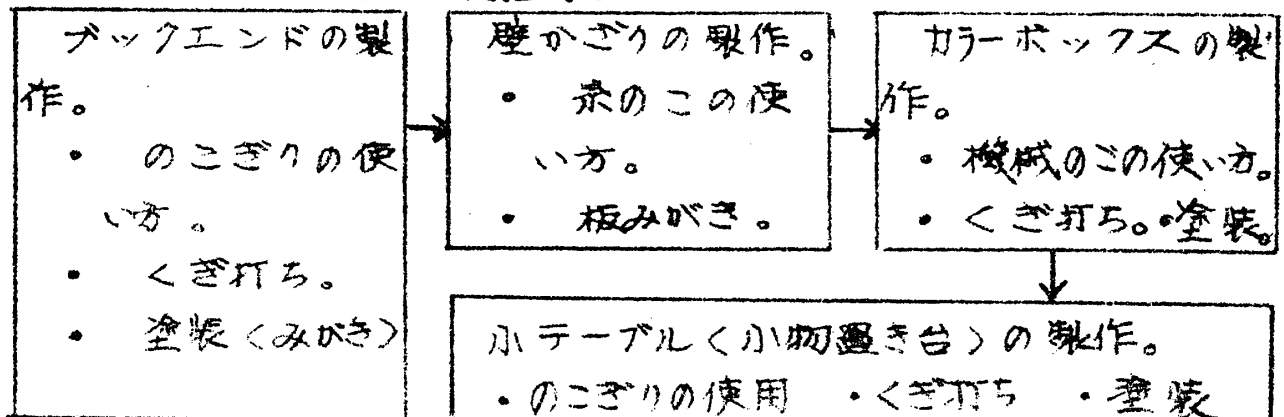 ブックエンドの製
作。
・ のこぎりの使
い方。
・ くぎ打ち。
・ 塗装〈みがき〉
壁かざりの製作。
・ 糸のこの使
い方。
・ 板みがき。
カラーボックスの製
作。
・機械のこの使い方。
・くぎ打ち。・塗装。
小テーブル〈小物置き台〉の製作。
・のこぎりの使用 ・くぎ打ち ・塗装